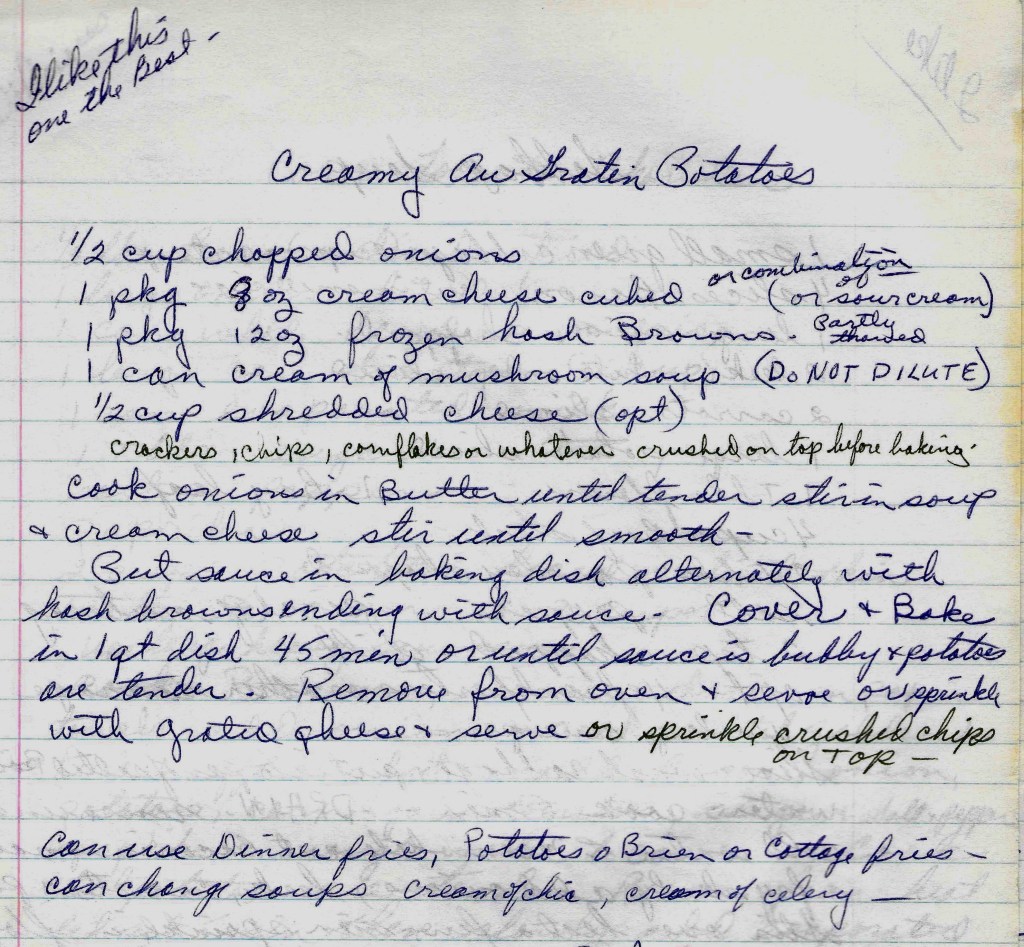 I like this
one the Best -
Creamy Au Gratin Potatoes
1/2 cup chopped onions
or combination
of
1 pkg 8 oz cream cheese cubed (or sour cream)
1 pkg 12 oz frozen hash Browns - Partly
thawed
1 can cream of mushroom soup (DO NOT DILUTE)
1/2 cup shredded cheese (opt)
crackers, chips, cornflakes or whatever crushed on top before baking.
Cook onions in Butter until tender stir in soup
& cream cheese stir until smooth -
Put sauce in baking dish alternately with
hash browns ending with sauce - Cover & Bake
in 1 qt dish 45 min or until sauce is bubbly & potatoes
are tender. Remove from oven & serve or sprinkle
with grated cheese & serve or sprinkle crushed chips
on TOP -
Can use Dinner fries, Potatoes o Brien or Cottage fries -
can change soups cream of chic, cream of celery -